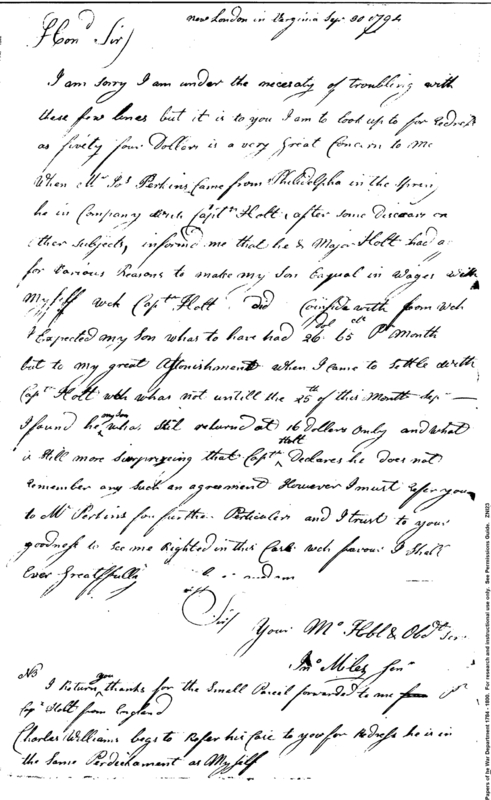 new London in Virginia Sepr 30 1794
Hond Sir
I am sorry I am under the necesaty of troubling with
these few lines but it is to you I am to look up to for Redress
as fivety four Dollers is a very Great Concern to me
When Mr Jos Perkins Came from Philidelpha in the Spring
he in Company with Captn Holt, after some Discours on
other Subjects, informd me that he & Major Holt had a
for Various Reasons to make my Son Equal in Wages with
Myself wch Captn Holt did Coinside with from wch
I Expected my Son whas to have had 26 Dol 65 cts Pr Month
but to my great Astonishment when I came to Settle with
Capt Holt wch whas not untill the 25th of this Month Sepr
I found he my Son whas Stil returned at 16 Dollers only and what
is still more Surprizeing that Captn Holt Declares he does not
remember any Such an agreement However I must refer you
to Mr Perkins for further Perticulers and I trust to your
goodness to See me Righted in this Case wch favour I Shall
Ever Greatffully
Sir
Your Mo Hbl & Obdt Ser
Jno Miles Senr
NB
I Return you thanks for the Small Parcil forwarded to me Pr
Captn Holt from England
Charles Williams begs to Refer his Case to you for Redress he is in
the Same Perdickament as Myself
Papers of the War Department 1784 - 1800. For research and instructional use only. See Permissions Guide. ZNI23